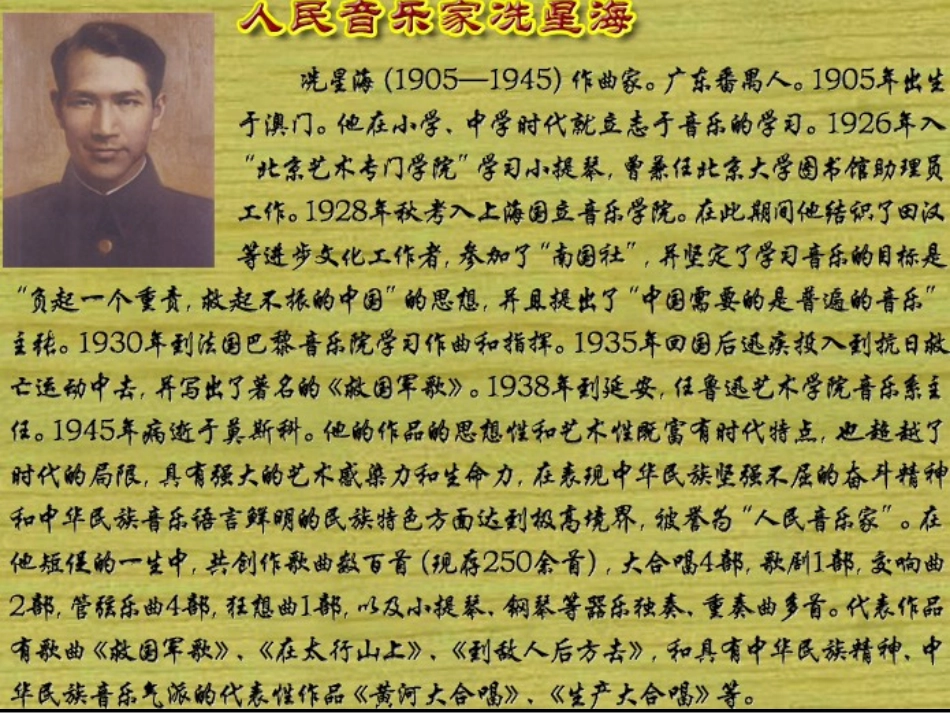 人民音乐家冼星海
冼星海(1905—1945)作曲家。广东番禺人。1905年出生
于澳门。他在小学、中学时代就立志于音乐的学习。1926年入
“北京艺术专门学院”学习小提琴,曾兼任北京大学图书馆助理员
工作。1928年秋考入上海国立音乐学院。在此期间他结识了田汉
等进步文化工作者,参加了“南国社”,并坚定了学习音乐的目标是
“负起一个重责,救起不振的中国”的思想,并且提出了“中国需要的是普遍的音乐”
主张。1930年到法国巴黎音乐院学习作曲和指挥。1935年回国后迅疾投入到抗日救
亡运动中去,并写出了著名的《救国军歌》。1938年到延安,任鲁迅艺术学院音乐系主
任。1945年病逝于莫斯科。他的作品的思想性和艺术性既富有时代特点,也超越了
时代的局限,具有强大的艺术感染力和生命力,在表现中华民族坚强不屈的奋斗精神
和中华民族音乐语言鲜明的民族特色方面达到极高境界,被誉为“人民音乐家”。在
他短促的一生中,共创作歌曲数百首(现存250余首),大合唱4部,歌剧1部,交响曲
2部,管弦乐曲4部,狂想曲1部,以及小提琴、钢琴等器乐独奏、重奏曲多首。代表作品
有歌曲《救国军歌》、《在太行山上》、《到敌人后方去》,和具有中华民族精神、中
华民族音乐气派的代表性作品《黄河大合唱》、《生产大合唱》等。